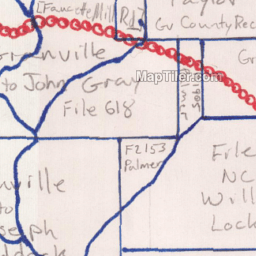 [Fawcett Mill Rd]
Taylor
Gv County Rec
Granville
to John Gray
File 618
Gr
MapTiler.com
F2153
Palmer
Erle
NC
Will
Lock
nville
to
seph
ddock